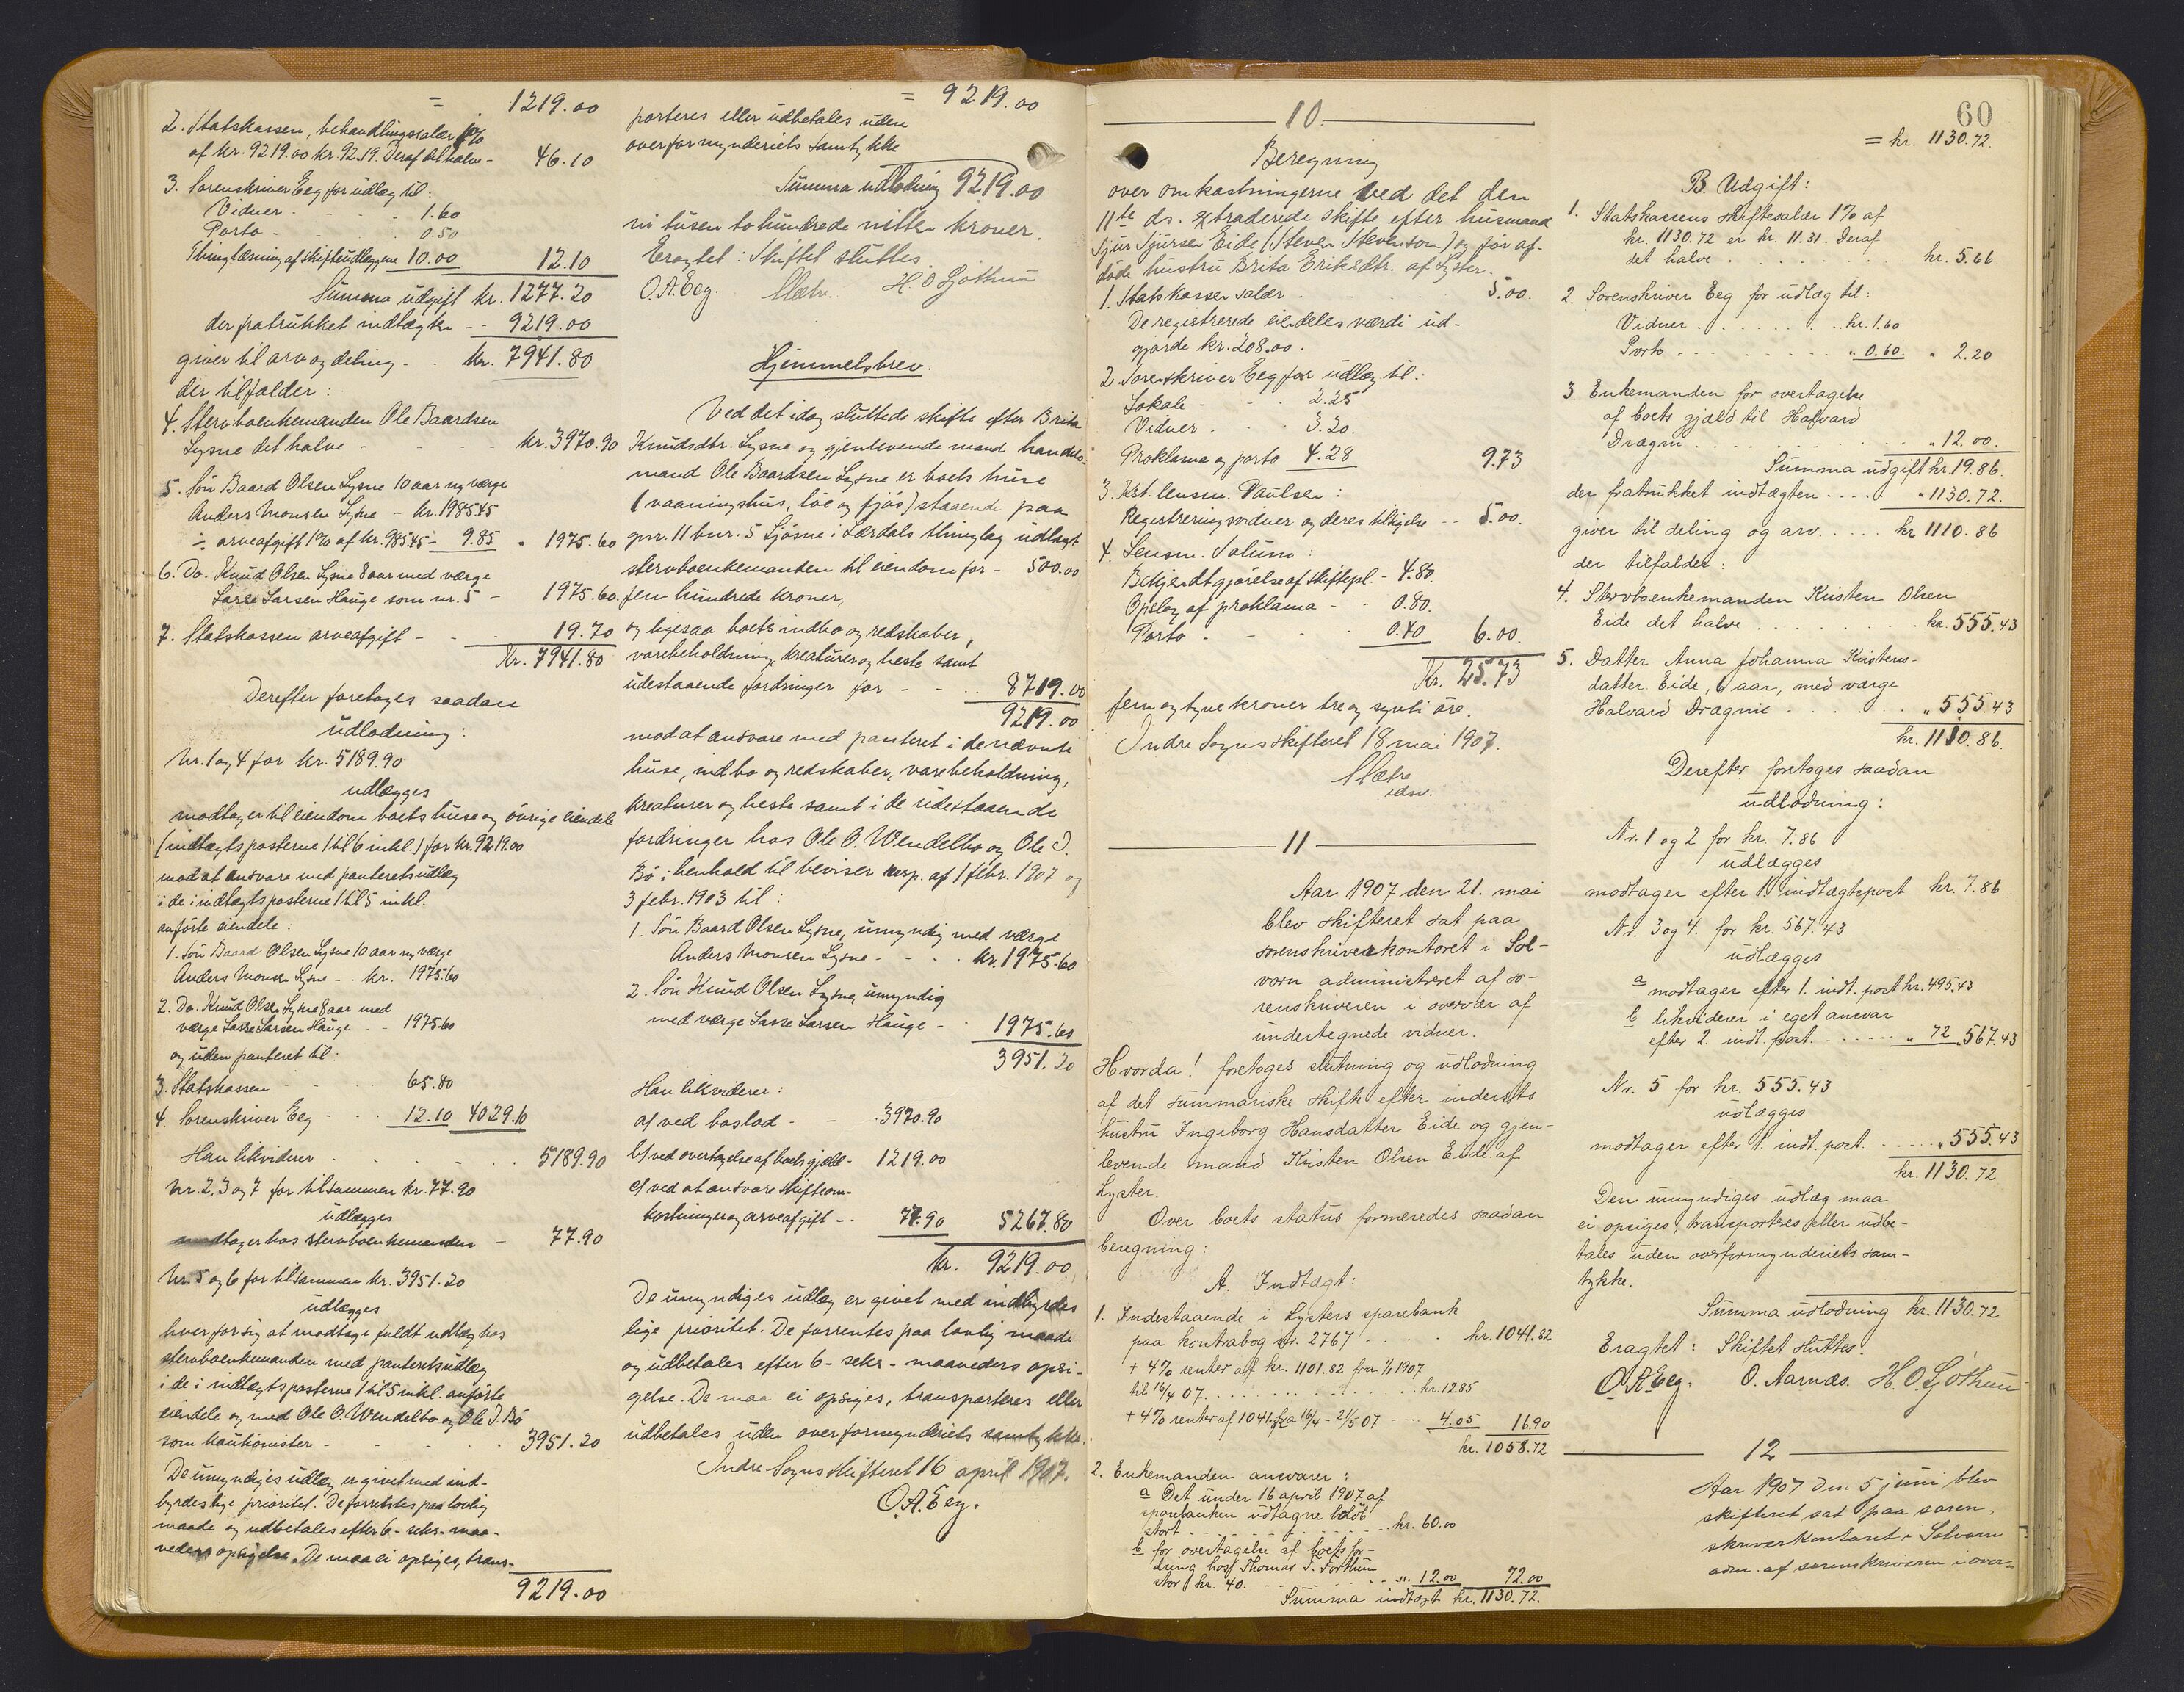 = 1219.00
2. Statskassen, behandlingssalær 1%
af kr. 9219.00 kr. 92.19. Deraf det halve - 46.10
3. Sorenskriver Eeg for udlæg til:
Vidner - - - 1.60
Porto - - - 0.50
Thinglæsning af skifteudlæggene 10.00 12.10
Summa udgift kr. 1277.20
der fratrukket indtægten - - 9219.00
giver til arv og deling - - kr. 7941.80
der tilfalder:
4. Stervboenkemanden Ole Baardsen
Lysne det halve - - - kr. 3970.90
5. Søn Baard Olsen Lysne 10 aar m/ værge
Anders Monsen Lysne - kr. 1985.45
÷ arveafgift 1% af kr. 985.45 - 9.85 " 1975.60
6. Do. Knud Olsen Lysne 8 aar med værge
Lasse Larsen Hauge som nr. 5 - 1975.60
7. Statskassen arveafgift - - - 19.70
Kr. 7941.80
Derefter foretoges saadan
udlodning:
Nr. 1 og 4 for kr. 5189.90
udlægges
modtager til eiendom boets huse og øvrige eiendele
(indtægtsposterne 1 til 6 inkl.) for kr. 9219.00
mod at ansvare med panteretsudlæg
i de i indtægtsposterne 1 til 5 inkl.
anførte eiendele:
1. Søn Baard Olsen Lysne 10 aar m/ værge
Anders Monsen Lysne - - kr. 1975.60
2. Do. Knud Olsen Lysne 8 aar med
værge Lasse Larsen Hauge - - 1975.60
og uden panteret til:
3. Statskassen - - - 65.80
4. Sorenskriver Eeg - - - 12.10 4029.10
Han likviderer - - - 5189.90
Nr. 2, 3 og 7 for tilsammen kr. 77.90
udlægges
modtager hos stervboenkemanden - 77.90
Nr. 5 og 6 for tilsammen kr. 3951.20
udlægges
hver for sig at modtage fuldt udlæg hos
stervboenkemanden med panteretsudlæg
i de i indtægtsposterne 1 til 5 inkl. anførte
eiendele og med Ole O. Wendelbo og Ole I. Bø
som kautionister - - - 3951.20
De umyndiges udlæg er givet med ind-
byrdes lige prioritet. De forrentes paa lovlig
maade og udbetales efter 6 - seks - maa-
neders opsigelse. De maa ei opsiges, trans-
9219.00
= 9219.00
porteres eller udbetales uden
overformynderiets samtykke
Summa udlodning 9219.00
ni tusen to hundrede nitten kroner.
Eragtet: Skiftet sluttes.
O.A. Eeg. Sletre. H O Sjøthun
Hjemmelsbrev.
Ved det idag sluttede skifte efter Brita
Knudsdtr. Lysne og gjenlevende mand handels-
mand Ole Baardsen Lysne er boets huse
(vaaningshus, løe og fjøs) staaende paa
gnr. 11 bnr. 5 Ljøsne i Lærdals thinglag udlagt
stervboenkemanden til eiendom for - 500.00
fem hundrede kroner,
og ligesaa boets indbo og redskaber,
varebeholdning, kreaturer og heste samt
udestaaende fordringer for - - - 8719.00
9219.00
mod at ansvare med panteret i de nævnte
huse, indbo og redskaber, varebeholdning,
kreaturer og heste samt i de udestaaende
fordringer hos Ole O. Wendelbo og Ole I.
Bø i henhold til beviser resp. af 1 febr. 1907 og
3 febr. 1903 til:
1. Søn Baard Olsen Lysne, umyndig med værge
Anders Monsen Lysne - - - kr. 1975.60
2. Søn Knud Olsen Lysne, umyndig
med værge Lasse Larsen Hauge - - 1975.60
3951.20
Han likviderer:
a) ved boslod - - 3970.90
b) ved overtagelse af boets gjæld - 1219.00
c) ved at ansvare skifteom-
kostninger og arveafgift - - 77.90 5267.80
kr. 9219.00
De umyndiges udlæg er givet med indbyrdes
lige prioritet. De forrentes paa lovlig maade
og udbetales efter 6 - seks - maaneders opsi-
gelse. De maa ei opsiges, transporteres eller
udbetales uden overformynderiets samtykke.
Indre Sogns skifteret 16 april 1907.
O.A. Eeg.
10
Beregning
over omkostningerne ved det den
11te ds. extraderede skifte efter husmand
Sjur Sjursen Eide (Steven Stevenson) og før af-
døde hustru Brita Eriksdtr. af Lyster.
1. Statskassen salær - - - 5.00.
De registrerede eiendeles værdi ud-
gjorde kr. 208.00.
2. Sorenskriver Eeg for udlæg til:
Lokale - - - 2.25
Vidner - - - 3.20.
Proklama og porto 4.28 9.73
3. Kst. lensm. Paulsen:
Registreringsvidner og deres tilsigelse - - 5.00.
4. Lensm. Solum:
Bekjendtgjørelse af skiftepl. - 4.80.
Opslag af proklama - - 0.80.
Porto - - - 0.40 6.00.
Kr. 25.73
fem og tyve kroner tre og sytti øre.
Indre Sogns skifteret 18 mai 1907.
Sletre
edsv.
11
Aar 1907 den 21. mai
blev skifteret sat paa
sorenskriverkontoret i Sol-
vorn administreret af so-
renskriveren i overvær af
undertegnede vidner.
Hvorda! foretoges slutning og udlodning
af det summariske skifte efter inderests
hustru Ingeborg Hansdatter Eide og gjen-
levende mand Kristen Olsen Eide af
Lyster.
Over boets status formeredes saadan
beregning:
A. Indtægt:
1. Indestaaende i Lysters sparebank
paa kontrabog nr. 2767 . . . . kr. 1041.82
+ 4% renter af kr. 1101.82 fra 1/1 1907
til 16/4 07. . . . . . . . . . kr. 12.85
+ 4% renter af 1041 fra 16/4 - 21/5 07 . . . . 4.05 16.90
kr. 1058.72
2. Enkemanden ansvarer:
a Det under 16 april 1907 af
sparebanken udtagne beløb
stort . . . . . . . . . kr. 60.00
b for overtagelse af boets for-
dring hos Thomas T. Forthun
stor kr. 40. - - - - - - " 12.00 72.00
Summa indtægt kr. 1130.72.
60
= kr. 1130.72.
B. Udgift:
1. Statskassens skiftesalær 1% af
kr. 1130.72 er kr. 11.31. Deraf
det halve . . . . . . . . kr. 5.66
2. Sorenskriver Eeg for udlæg til:
Vidner . . . . . . . kr. 1.60
Porto . . . . . . . " 0.60. " 2.20
3. Enkemanden for overtagelse
af boets gjæld til Halvard
Drægni . . . . . . . . . . " 12.00.
Summa udgift kr. 19.86.
der fratrukket indtægten . . . . " 1130.72.
giver til deling og arv. . . . . kr 1110.86
der tilfalder:
4. Stervboenkemanden Kristen Olsen
Eide det halve . . . . . . . . . kr. 555.43
5. Datter Anna Johanna Kristens-
datter Eide, 6 aar, med værge
Halvard Drægni . . . . . . " 555.43
kr. 1110.86.
Derefter foretoges saadan
udlodning:
Nr. 1 og 2 for kr. 7.86
udlægges
modtager efter 1. indtægtspost kr. 7.86
Nr. 3 og 4. for kr. 567.43
udlægges
a modtager efter 1. indt. post kr. 495.43
b likviderer i eget ansvar
efter 2. indt. post. . . . . . . " 72 " 567.43
Nr. 5 for kr. 555.43
udlægges
modtager efter 1. indt. post. . . . . . " 555.43
kr. 1130.72
Den umyndiges udlæg maa
ei opsiges, transporteres eller udbe-
tales uden overformynderiets sam-
tykke.
Summa udlodning kr. 1130.72
Eragtet: Skiftet sluttes.
O.A. Eeg. O. Aarnæs. H. O. Sjøthun
12
Aar 1907 den 5 juni blev
skifteret sat paa soren-
skriverkontoret i Solvorn
adm. af sorenskriveren i over-